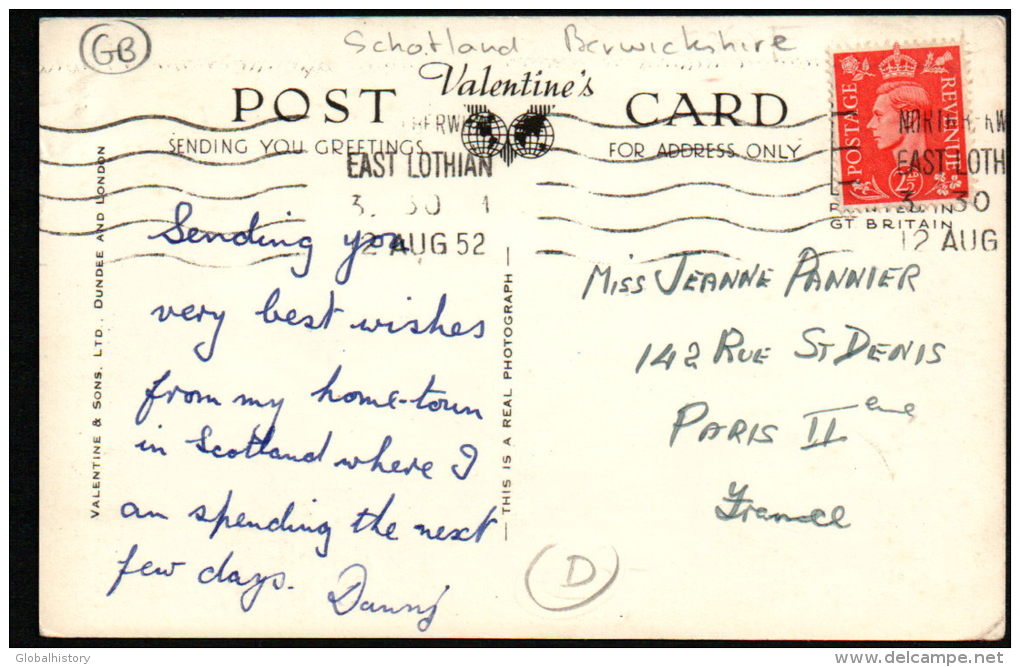 GB
Schotland Berwickshire
Valentine's
POST CARD
SENDING YOU GREETINGS
FOR ADDRESS ONLY
POSTAGE REVENUE
2½
HERW
EAST LOTHIAN
3. 30
12 AUG 52
NORTH
EAST LOTH
3. 30
12 AUG
PRINTED IN
GT BRITAIN
VALENTINE & SONS, LTD., DUNDEE AND LONDON
Sending you
very best wishes
from my home-town
in Scotland where I
am spending the next
few days. Danny
THIS IS A REAL PHOTOGRAPH
MISS JEANNE PANNIER
142 RUE ST DENIS
PARIS II eme
France
D
Globalhistory
delcampe.net